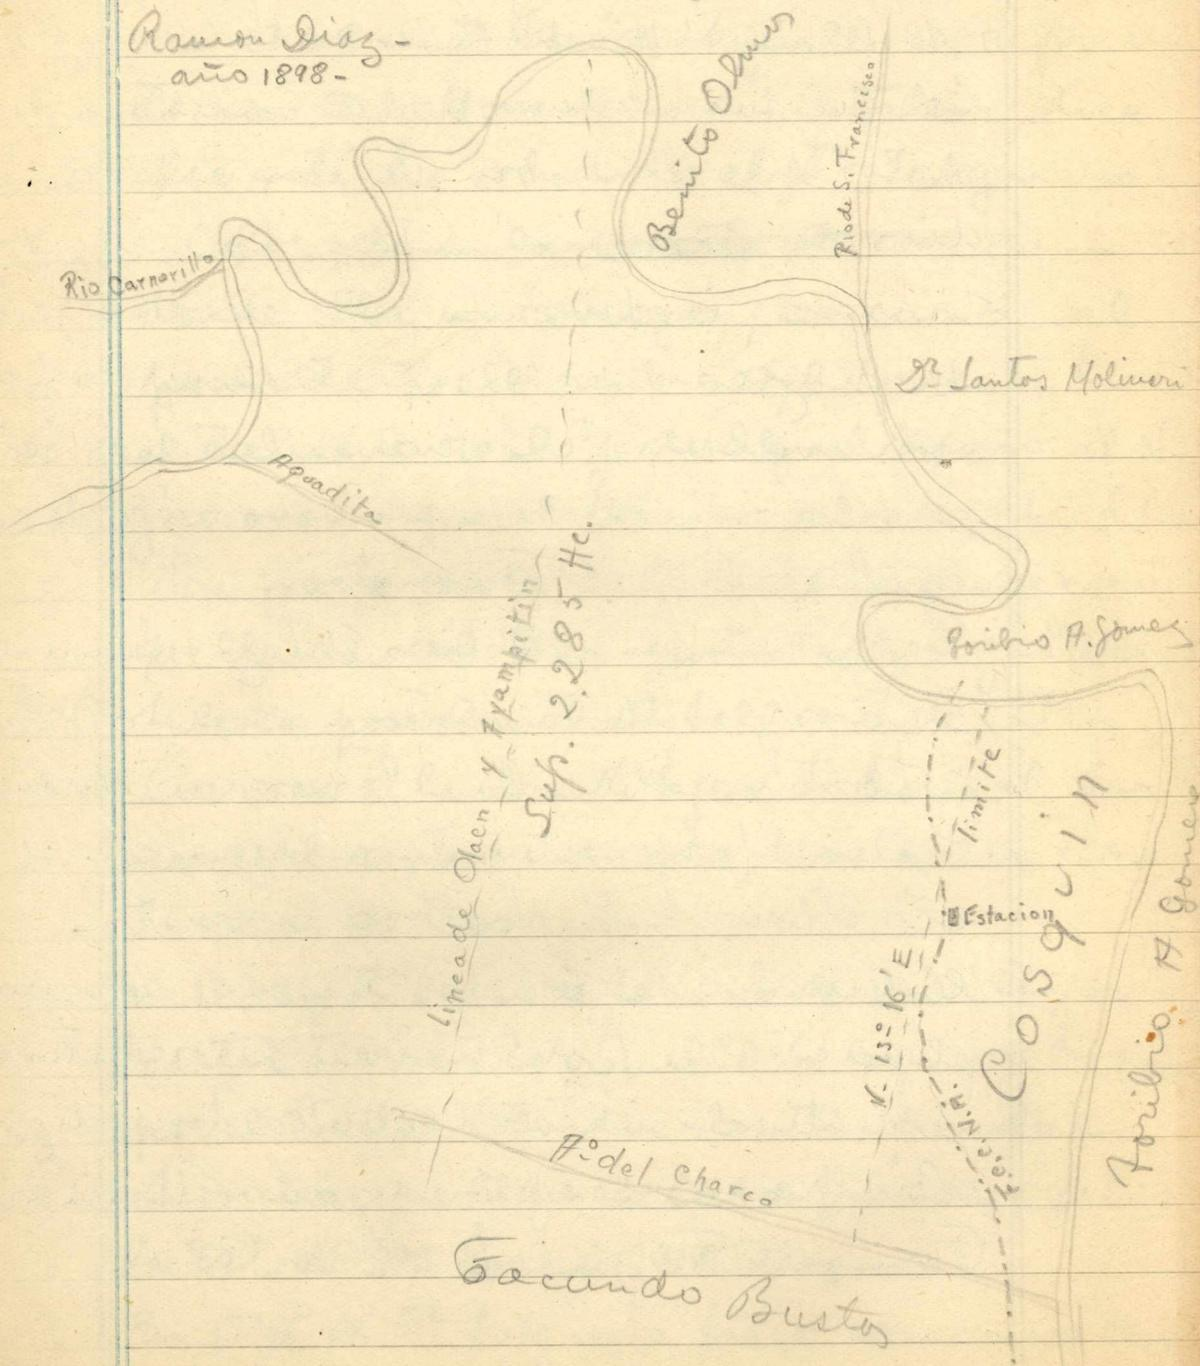 Ramon Diaz -
año 1898 -
Benito Olmos
Rio de S. Francisco
Rio Carnerillo
Dr. Santos Molineri
Aguadita
Toribio A. Gomez
Linea de Olaen y Ayampitin
Sup. 2.285 Hc.
limite
Estacion
Cosquin
Toribio A Gomez
N. 13º 16' E
F.C.C.N.A.
Aº del Charco
Facundo Bustos